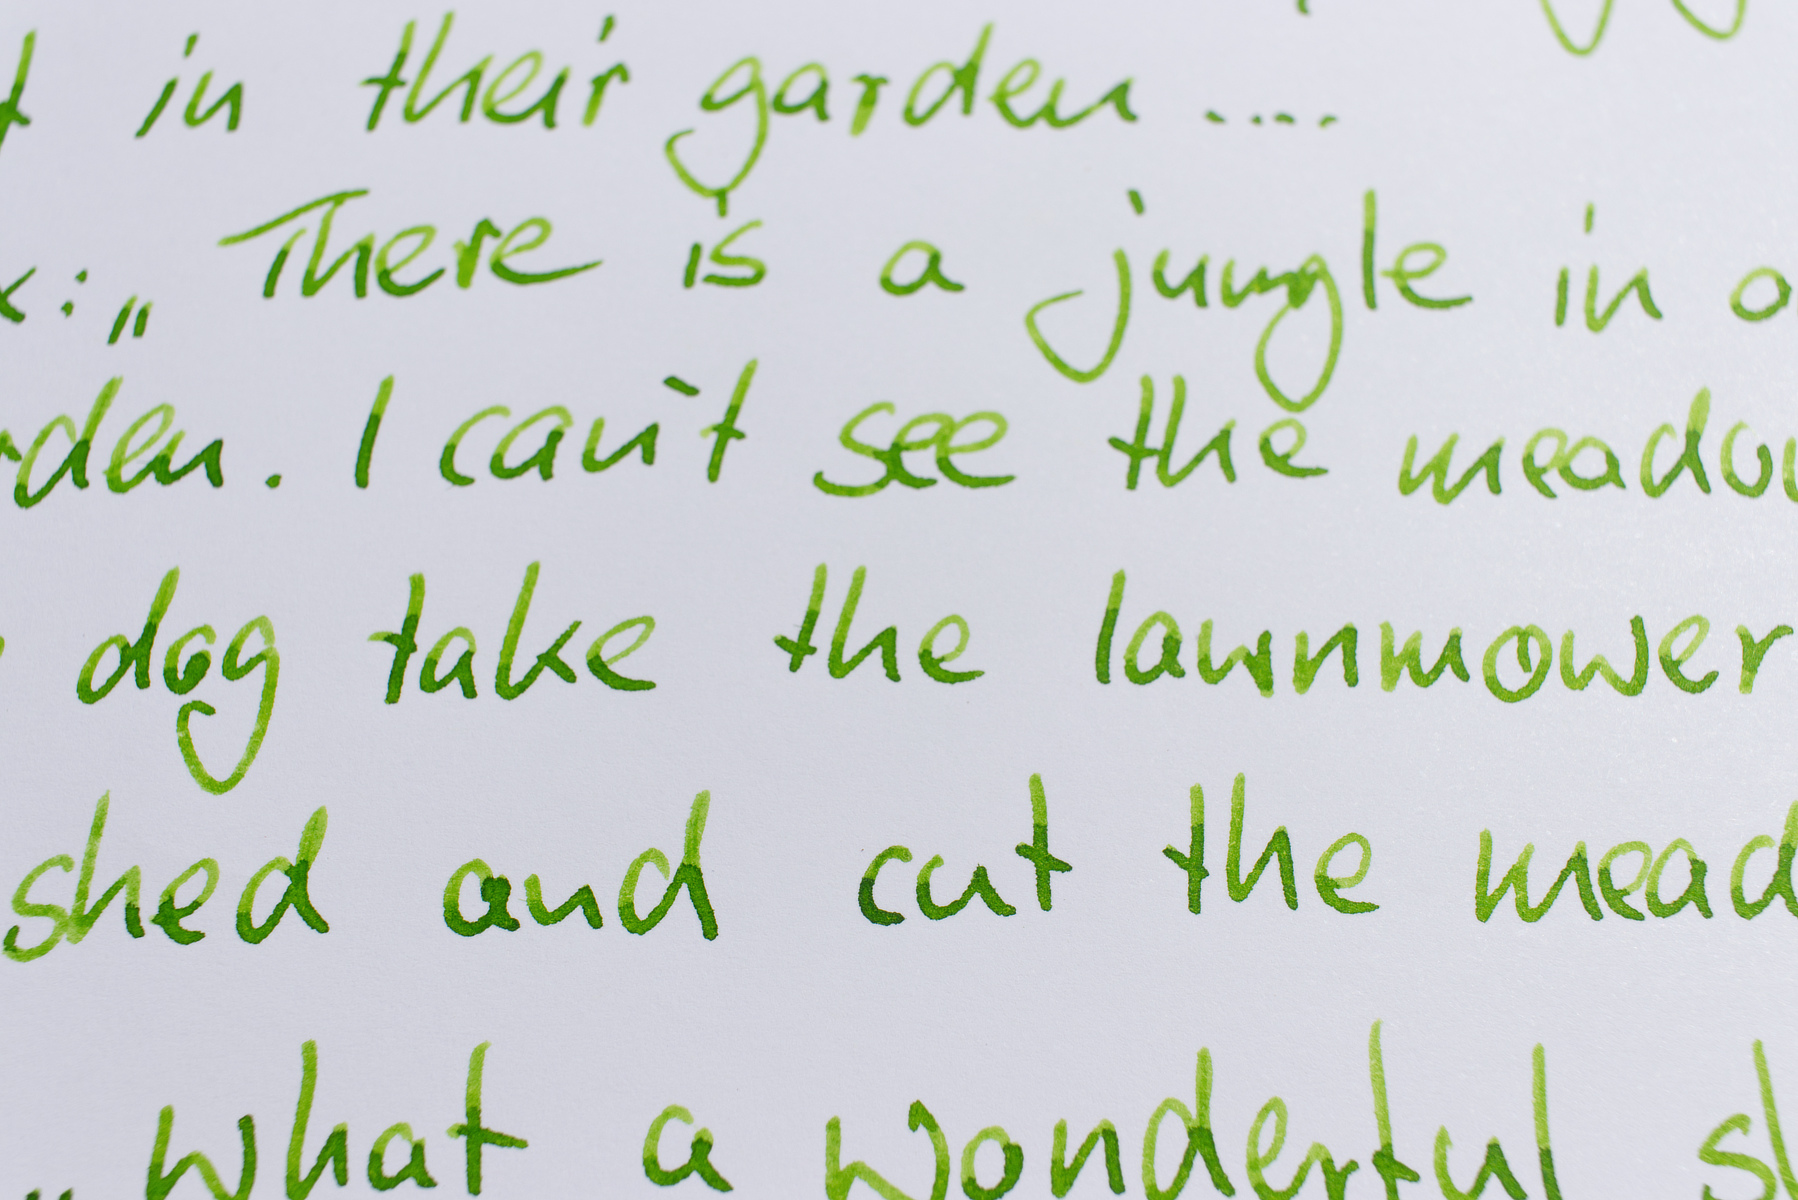 in their garden ....
: „There is a jungle in
. I can`t see the
dog take the lawnmower
shed and cut the
what a wonderful